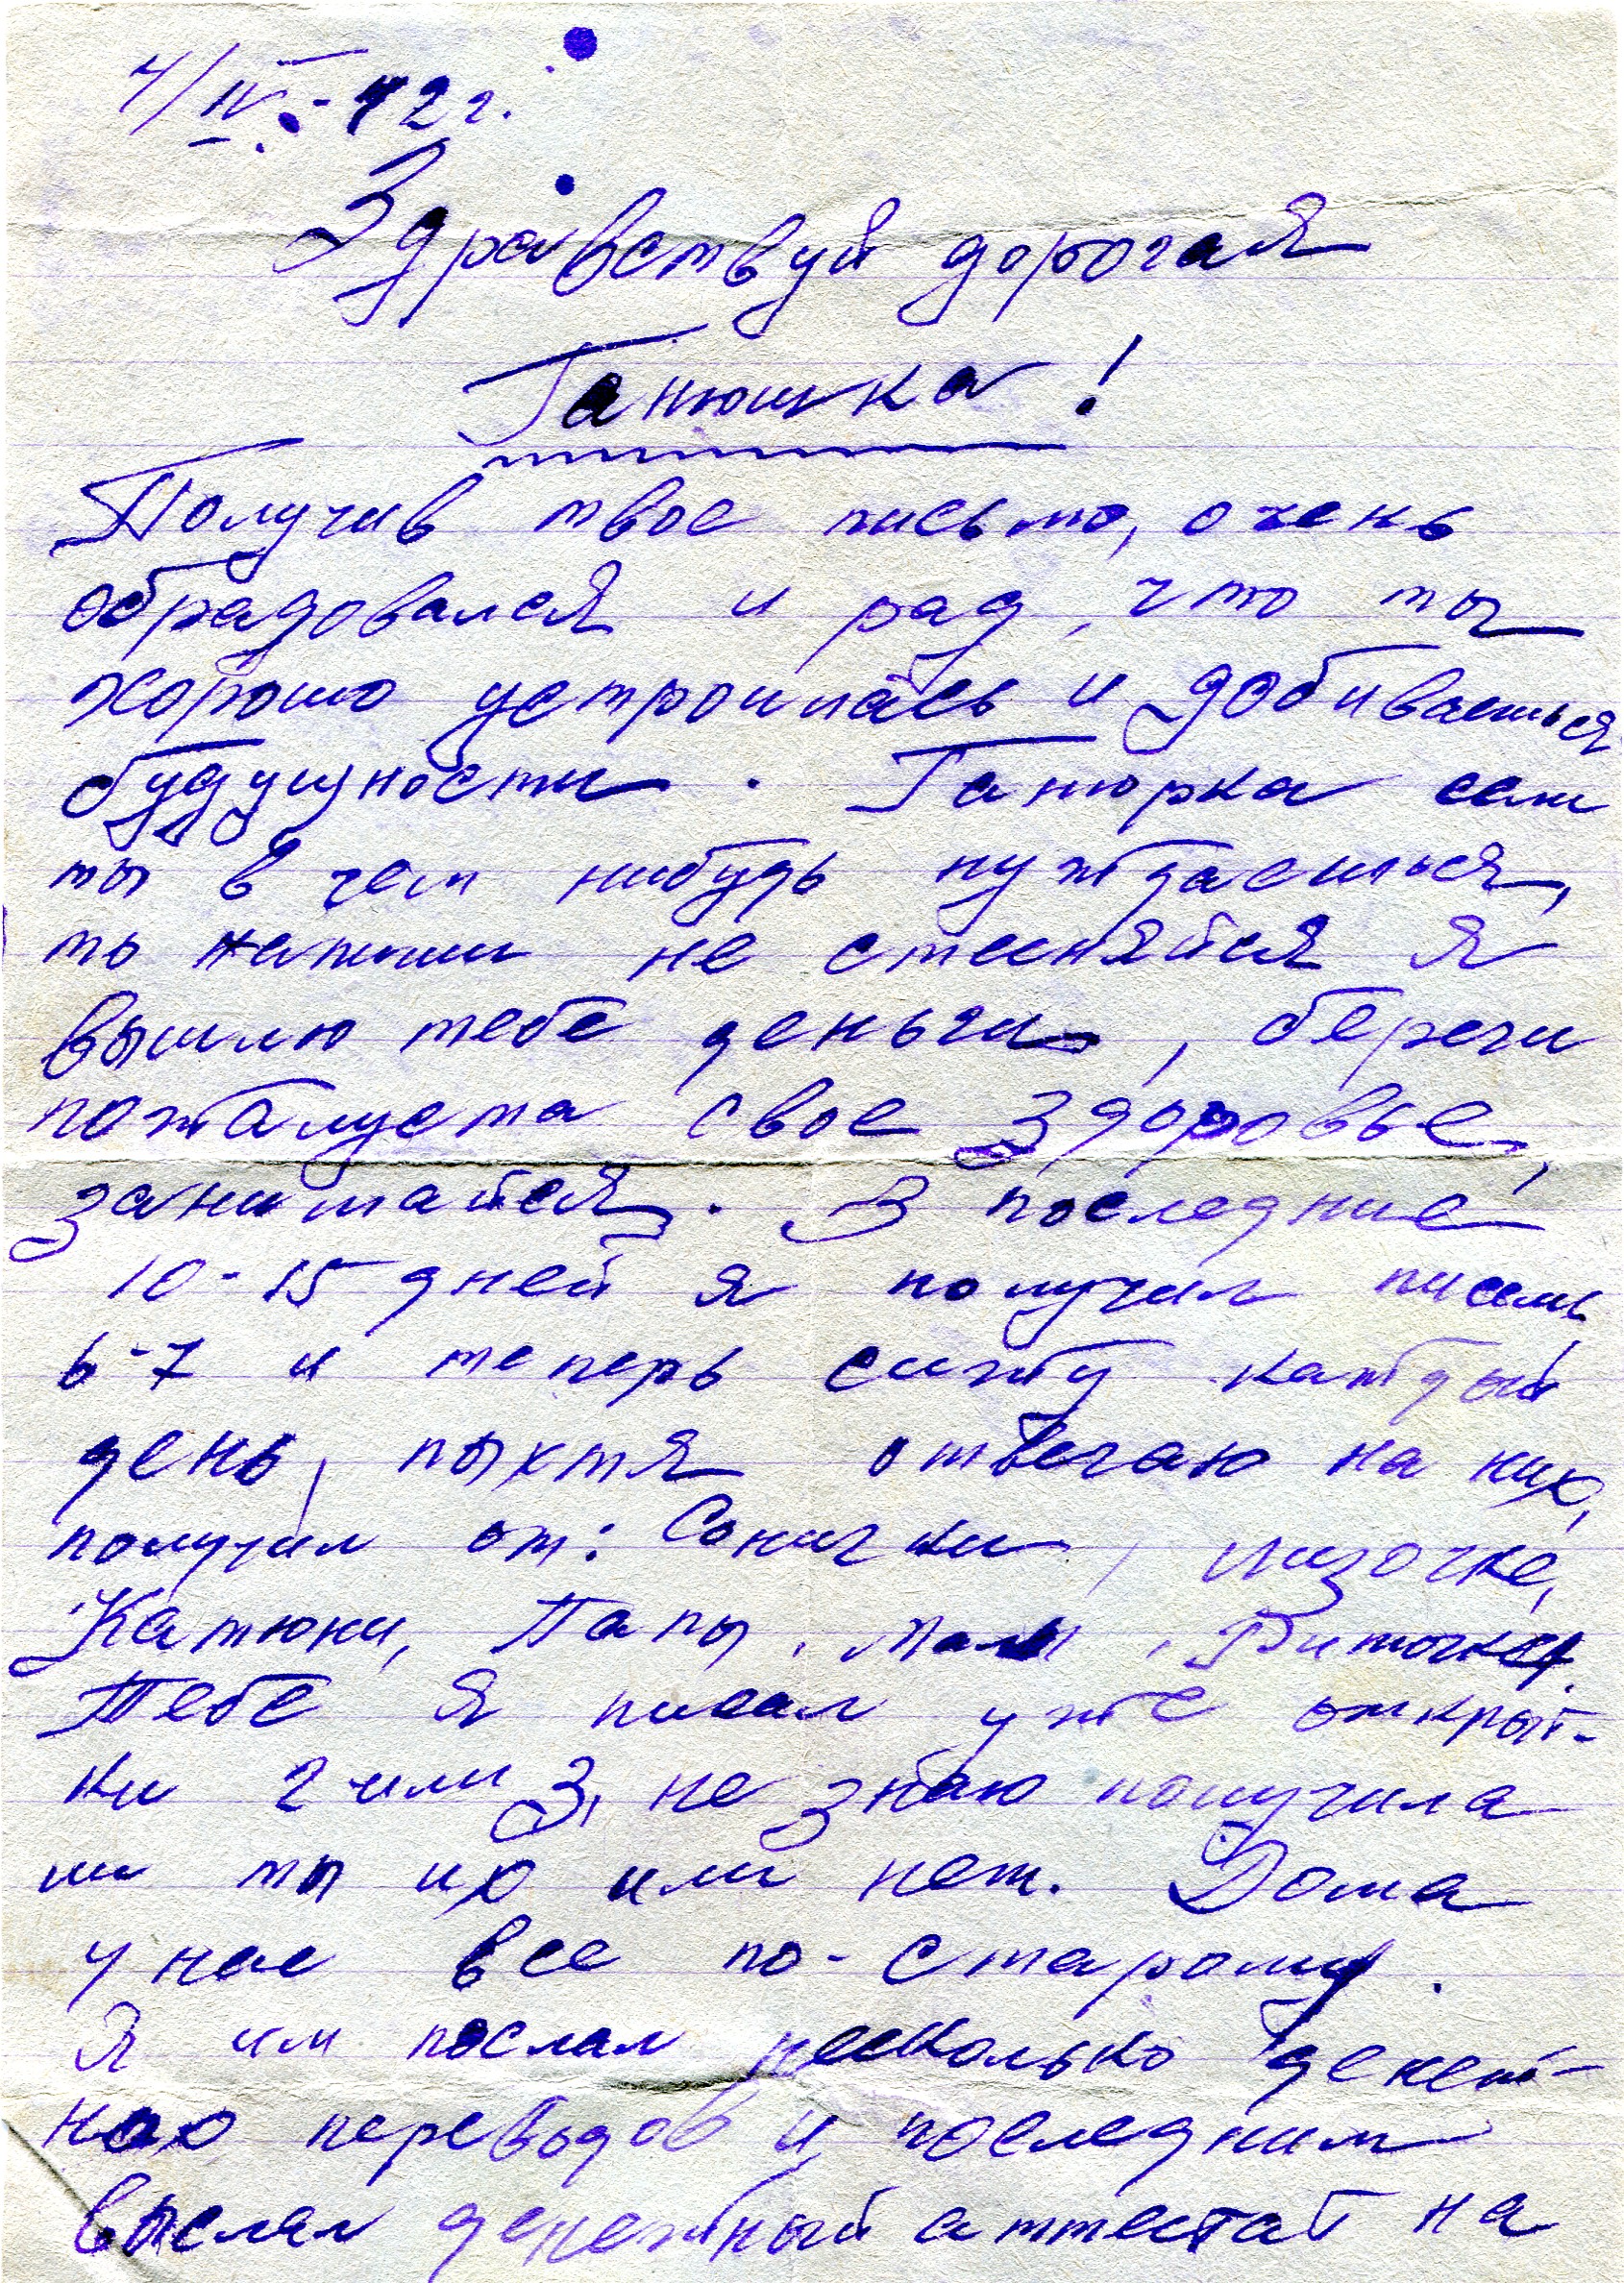 4/IV.-42 г.
Здравствуй дорогая
Ганюшка!
Получив твое письмо, очень
обрадовался и рад, что ты
хорошо устроилась и добиваешься
будущности. Ганюрка если
ты в чем нибудь нуждаешься,
то напиши не стесняйся я
вышлю тебе деньги, береги
пожалуста свое здоровье,
занимайся. В последние
10-15 дней я получил писем
6-7 и теперь сижу каждый
день, пыхтя отвечаю на них,
получил от: Сонички, Лизочке,
Катюни, Папы, Мамы, Риточки.
Тебе я писал уже открыт-
ки 2 или 3, не знаю получила
ли ты их или нет. Дома
у нас все по-старому.
Я им послал несколько денеж-
ных переводов и последним
выслал денежный аттестат на